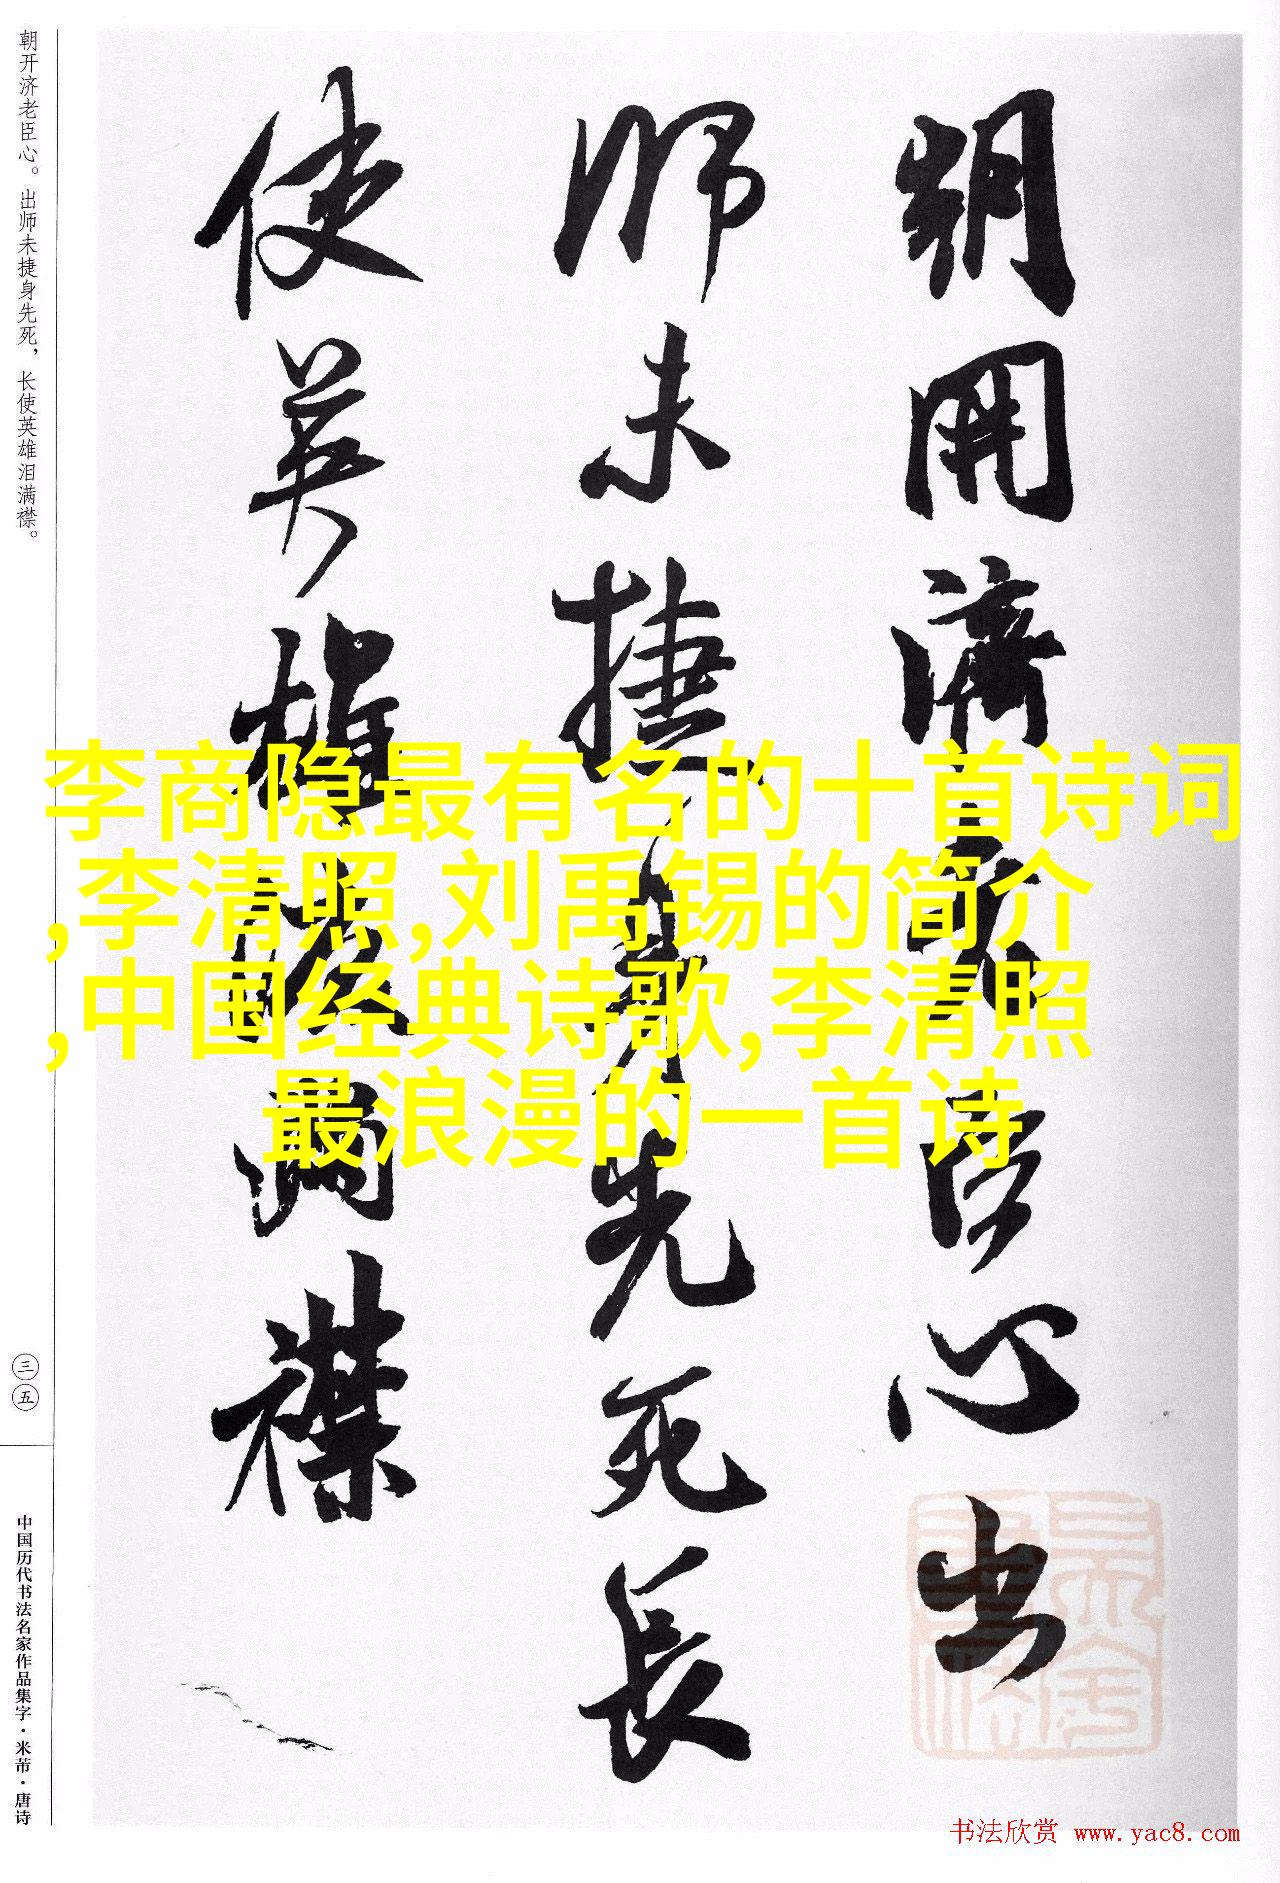 朝开济老臣心。出师未捷身先死，长使英雄泪满襟。
三五
中国历代书法名家作品集字·米芾·唐诗
朝開濟老臣心出
師未捷身先死長
使英雄淚滿襟
李商隐最有名的十首诗词
,李清照,刘禹锡的简介
,中国经典诗歌,李清照
最浪漫的一首诗
书法欣赏 www.yac8.com